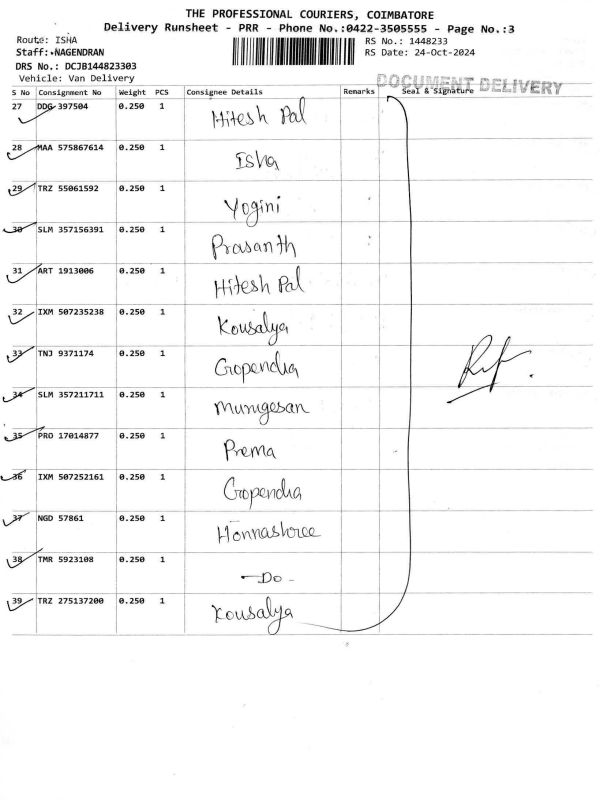 THE PROFESSIONAL COURIERS, COIMBATORE
Delivery Runsheet - PRR - Phone No.:0422-3505555 - Page No.:3
Route: ISHA
RS No.: 1448233
Staff: NAGENDRAN
RS Date: 24-Oct-2024
DRS No.: DCJB144823303
Vehicle: Van Delivery
DOCUMENT DELIVERY
S No Consignment No Weight PCS Consignee Details Remarks Seal & Signature
27 DDG 397504 0.250 1 Hitesh Pal
28 MAA 575867614 0.250 1 Isha
29 TRZ 55061592 0.250 1 Yogini
30 SLM 357156391 0.250 1 Prasanth
31 ART 1913006 0.250 1 Hitesh Pal
32 IXM 507235238 0.250 1 Kousalya
33 TNJ 9371174 0.250 1 Gopendra
34 SLM 357211711 0.250 1 Murugesan
35 PRO 17014877 0.250 1 Prema
36 IXM 507252161 0.250 1 Gopendra
37 NGD 57861 0.250 1 Honnashree
38 TMR 5923108 0.250 1 -Do-
39 TRZ 275137200 0.250 1 Kousalya